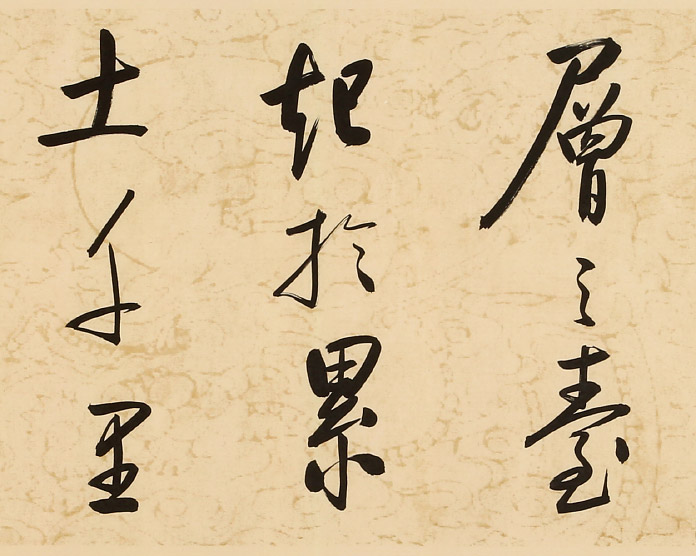 層之臺
起於累
土千里